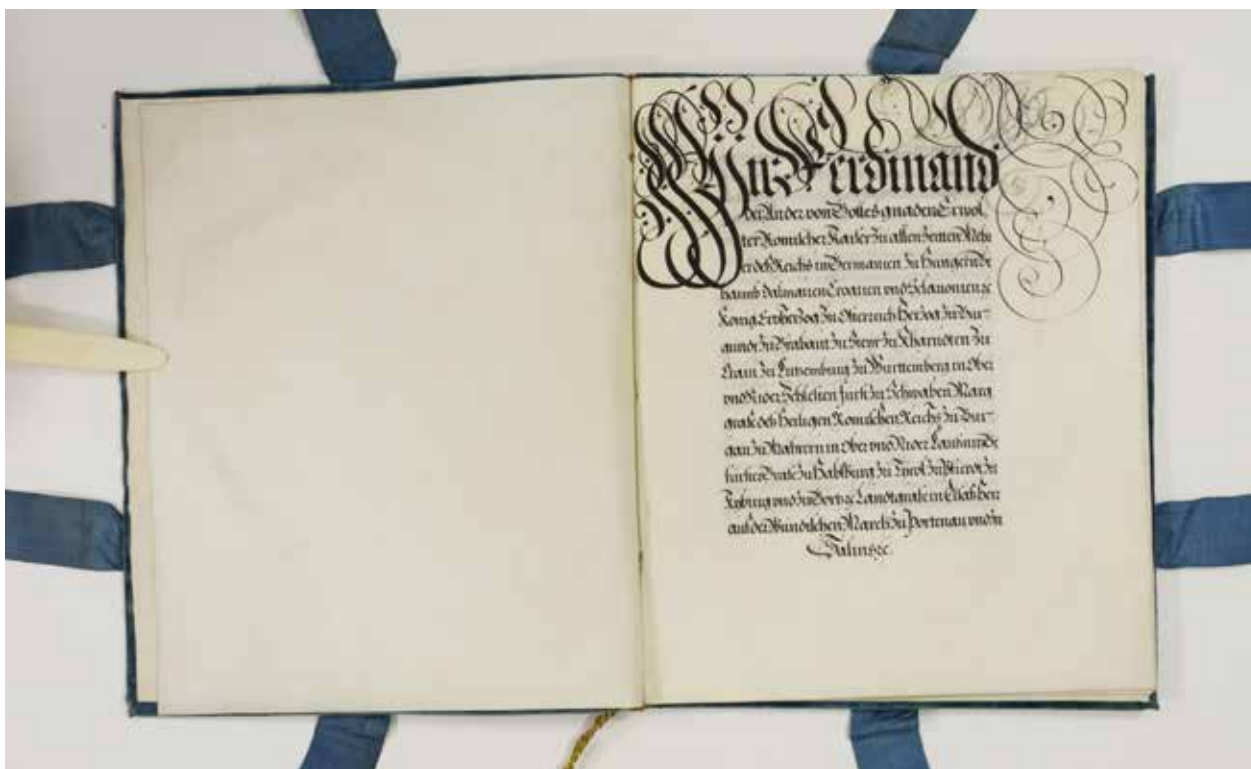 Wir Ferdinand
der Ander von Gottes gnaden Erwöl-
ter Römischer Kaiser zu allen zeiten Mehr
er deß Reichs in Germanien zu Hungern Be
haimb Dalmatien Croatien und Sclavonien ꝛc
König Ertzherzog zu Österreich Herzog zu Bur-
gundt zu Brabant zu Steyr zu Khärndten zu
Crain zu Lutzemburg zu Württemberg in Ober
und Nider Schlesien Fürst zu Schwaben Marg
grafe deß Heiligen Römischen Reichs zu Bur-
gau zu Mährern in Ober und Nider Laußnitz Ge
fürster Grafe zu Habspurg zu Tyrol zu Pfierdt zu
Kyburg und zu Görtz ꝛc Landtgrafe in Elsaß Herr
auf der Windischen March zu Portenau und zu
Salins ꝛc.